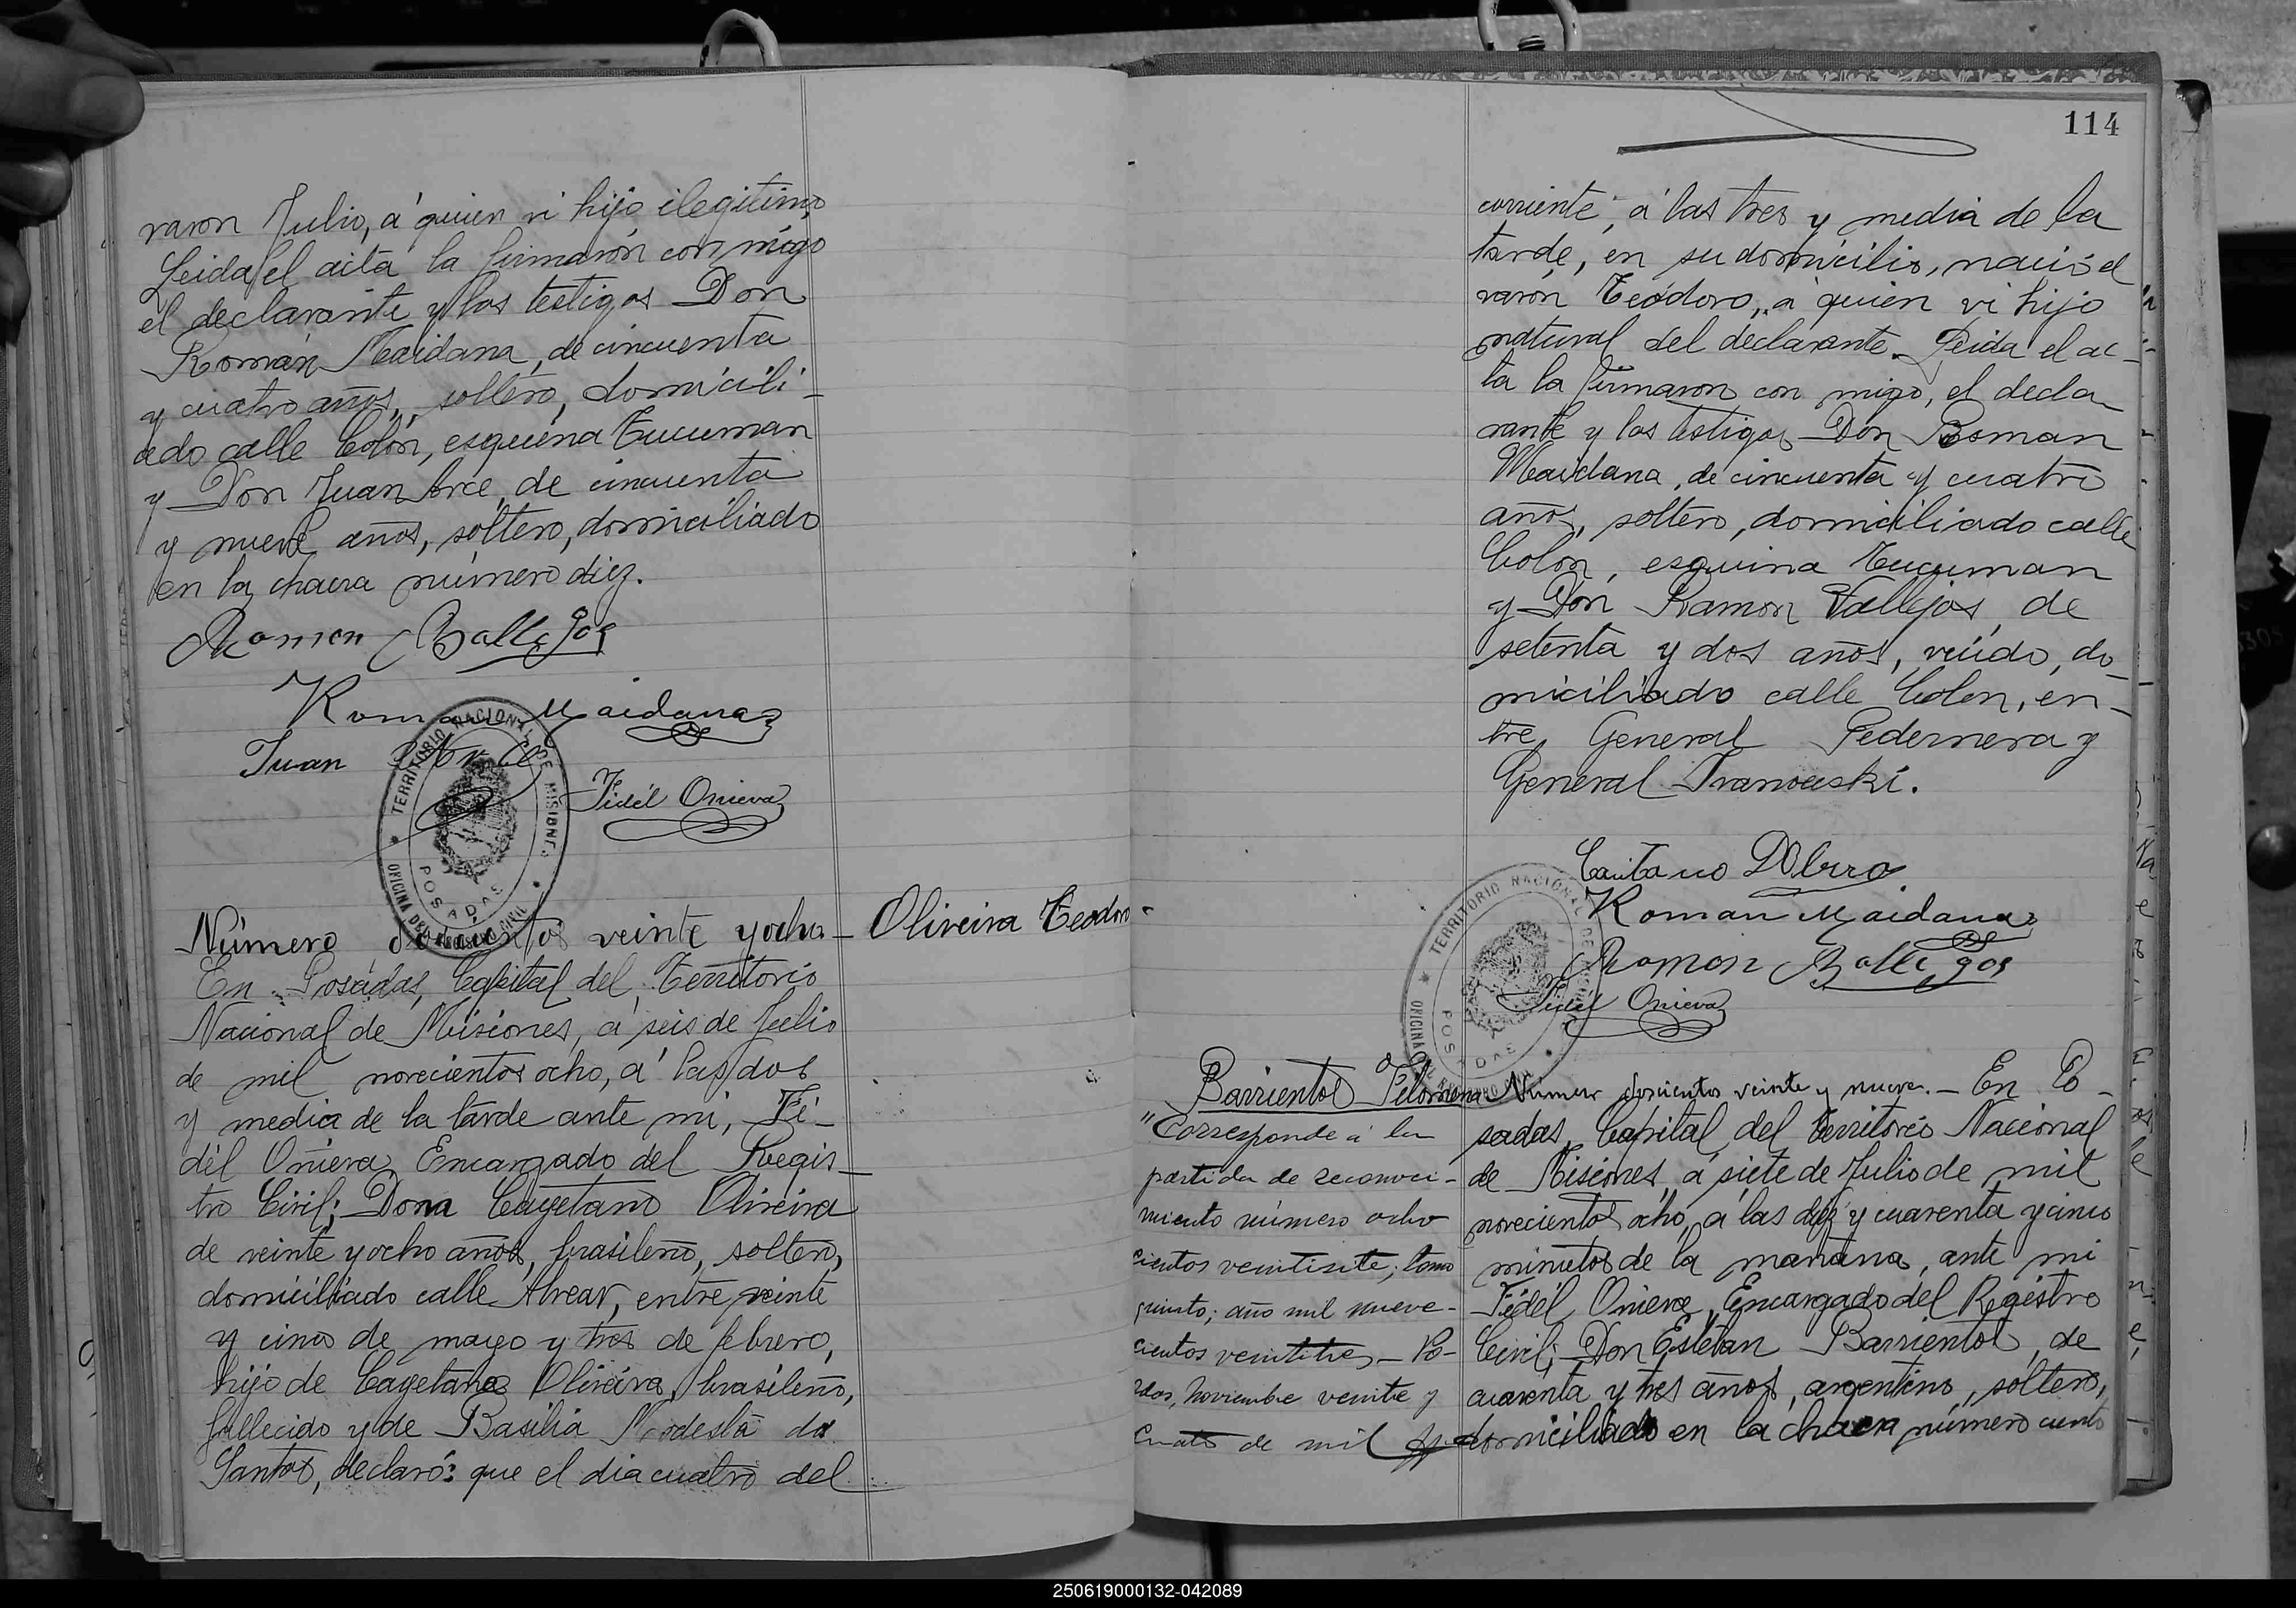 varon Julio, á quien vi hijo ilegitimo
Leida el acta la firmarón con migo
el declarante y los testigos Don
Román Maidana, de cincuenta
y cuatro años, soltero, domicili-
ado calle Colón, esquina Tucuman
y Don Juan Arce, de cincuenta
y nueve años, soltero, domiciliado
en la chacra número diez.
Ramon Ballegos
Roman Maidana
Juan Arce
Fidél Onieva
TERRITORIO NACIONAL DE MISIONES
OFICINA DEL REGISTRO CIVIL
POSADAS
Número doscientos veinte y ocho - Oliveira Teodoro
En Posadas, Capital del Territorio
Nacional de Misiones, á seis de Julio
de mil novecientos ocho, á las dos
y media de la tarde ante mi, Fi-
dél Onieva, Encargado del Regis-
tro Civil; Don Cayetano Oliveira
de veinte y ocho años, brasileño, soltero,
domiciliado calle Alvear, entre veinte
y cinco de mayo y tres de febrero,
hijo de Cayetano Oliveira, brasileño,
fallecido y de Basilia Modesta da
Santos, declaró: que el dia cuatro del
114
corriente, á las tres y media de la
tarde, en su domicilio, nació el
varón Teodoro, á quien vi hijo
natural del declarante. Leida el ac-
ta la firmaron con migo, el decla-
rante y los testigos Don Roman
Maidana, de cincuenta y cuatro
años, soltero, domiciliado calle
Colon, esquina Tucuman
y Don Ramon Vallejos, de
setenta y dos años, viúdo, do-
miciliado calle Colon, en-
tre General Pedernera y
General Franouski.
Caitano
Roman Maidana
Ramon Ballegos
Fidél Onieva
TERRITORIO NACIONAL DE
OFICINA
POSADAS
Barrientos Filomena
"Corresponde á la
partida de reconoci-
miento número ocho
cientos veintisite; tomo
quinto; año mil nueve-
cientos veintitres - Po-
sdas, Noviembre veinte y
cuatro de mil
Número doscientos veinte y nueve. - En Po-
sadas, Capital del Territorio Nacional
de Misiones, á siete de Julio de mil
novecientos ocho, á las diez y cuarenta y cinco
minutos de la mañana, ante mi
Fidél Onieva, Encargado del Registro
Civil; Don Estéban Barrientos, de
cuarenta y tres años, argentino, soltero,
domiciliado en la chacra número ciento
250619000132-042089